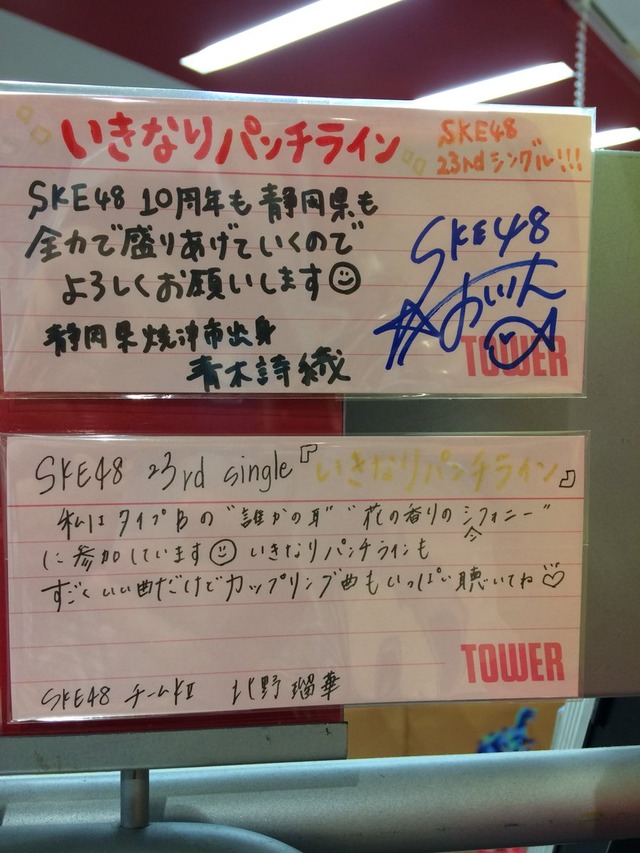 いきなりパンチライン
SKE48
23ndシングル!!!
SKE48 10周年も静岡県も
全力で盛りあげていくので
よろしくお願いします
静岡県焼津市出身
青木詩織
SKE48
おいりん
TOWER
SKE48 23rd single『いきなりパンチライン』
私はタイプBの"誰かの耳" "花の香りのシンフォニー"
に参加しています いきなりパンチラインも
すごくいい曲だけどカップリング曲もいっぱい聴いてね♡
TOWER
SKE48 チームKⅡ 北野瑠華